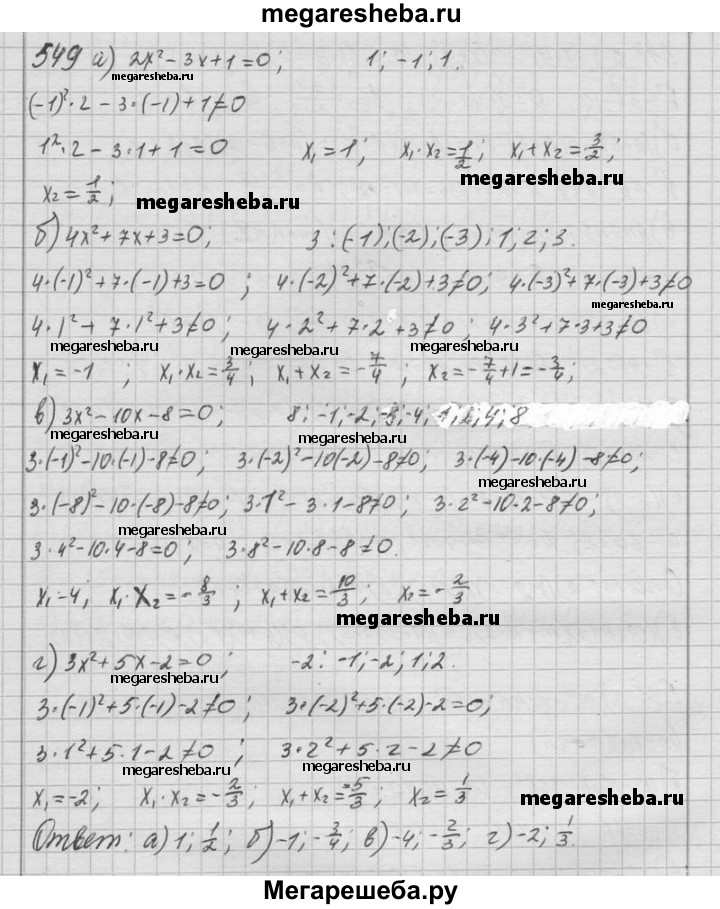 megaresheba.ru
549 а) 2x² - 3x + 1 = 0; 1; -1; 1.
megaresheba.ru
(-1)²·2 - 3·(-1) + 1 ≠ 0
1²·2 - 3·1 + 1 = 0 x₁ = 1; x₁·x₂ = 1/2; x₁ + x₂ = 3/2;
megaresheba.ru
x₂ = 1/2; megaresheba.ru
б) 4x² + 7x + 3 = 0; 3: (-1); (-2); (-3); 1; 2; 3.
4·(-1)² + 7·(-1) + 3 = 0; 4·(-2)² + 7·(-2) + 3 ≠ 0; 4·(-3)² + 7·(-3) + 3 ≠ 0
megaresheba.ru
4·1² + 7·1² + 3 ≠ 0; 4·2² + 7·2 + 3 ≠ 0; 4·3² + 7·3 + 3 ≠ 0
megaresheba.ru megaresheba.ru megaresheba.ru
x₁ = -1; x₁·x₂ = 3/4; x₁ + x₂ = -7/4; x₂ = -7/4 + 1 = -3/4;
в) 3x² - 10x - 8 = 0; 8: -1; -2; -3; -4; 1; 2; 4; 8
megaresheba.ru
3·(-1)² - 10·(-1) - 8 ≠ 0; 3·(-2)² - 10(-2) - 8 ≠ 0; 3·(-4) - 10·(-4) - 8 ≠ 0;
megaresheba.ru
3·(-8)² - 10·(-8) - 8 ≠ 0; 3·1² - 3·1 - 8 ≠ 0; 3·2² - 10·2 - 8 ≠ 0;
megaresheba.ru
3·4² - 10·4 - 8 = 0; 3·8² - 10·8 - 8 ≠ 0.
x₁ - 4; x₁·x₂ = -8/3; x₁ + x₂ = 10/3; x₂ = -2/3
megaresheba.ru
г) 3x² + 5x - 2 = 0; -2: -1; -2; 1; 2.
megaresheba.ru
3·(-1)² + 5·(-1) - 2 ≠ 0; 3·(-2)² + 5·(-2) - 2 = 0;
3·1² + 5·1 - 2 ≠ 0; 3·2² + 5·2 - 2 ≠ 0
megaresheba.ru
x₁ = -2; x₁·x₂ = -2/3; x₁ + x₂ = -5/3; x₂ = 1/3
megaresheba.ru
Ответ: а) 1; 1/2; б) -1; -3/4; в) -4; -2/3; г) -2; 1/3.
Мегарешеба.ру